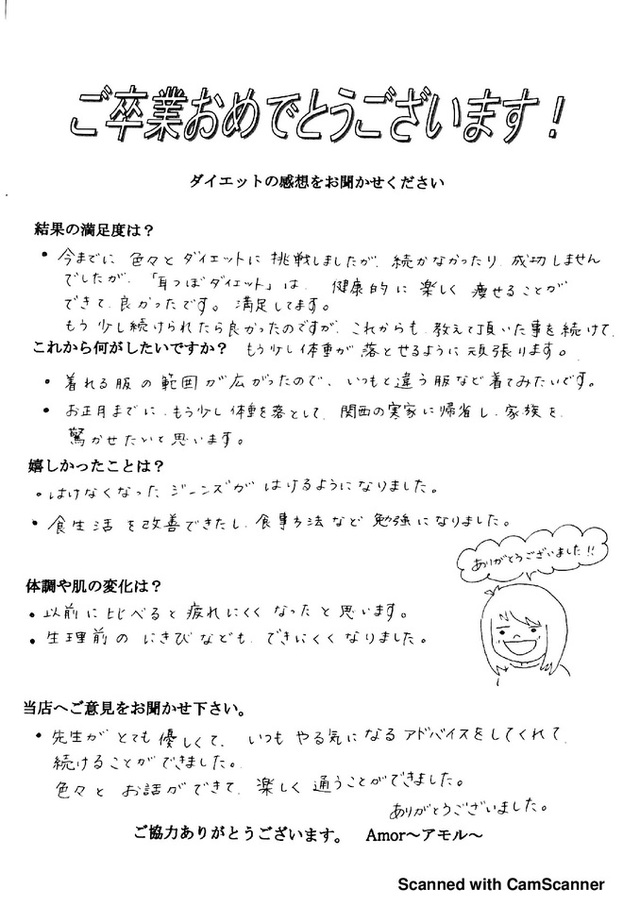 ご卒業おめでとうございます！
ダイエットの感想をお聞かせください
結果の満足度は？
・今までに 色々と ダイエットに 挑戦しましたが、続かなかったり、成功しません
でしたが、「耳つぼダイエット」は、健康的に 楽しく 痩せることが
できて、良かったです。満足してます。
もう少し続けられたら良かったのですが、これからも、教えて頂いた事を続けて、
これから何がしたいですか？ もう少し体重が 落とせるように 頑張ります。
・着れる服の範囲が広がったので、いつもと違う服など着てみたいです。
・お正月までに、もう少し体重を落として、関西の実家に帰省し、家族を、
驚かせたいと思います。
嬉しかったことは？
・はけなくなった ジーンズが はけるようになりました。
・食生活を改善できたし、食事方法など 勉強になりました。
ありがとうございました!!
体調や肌の変化は？
・以前に比べると 疲れにくく なったと思います。
・生理前の にきびなども、できにくくなりました。
当店へご意見をお聞かせ下さい。
・先生が とても 優しくて、いつも やる気になるアドバイスをしてくれて、
続けることができました。
色々と お話ができて、楽しく 通うことができました。
ありがとうございました。
ご協力ありがとうございます。 Amor～アモル～
Scanned with CamScanner